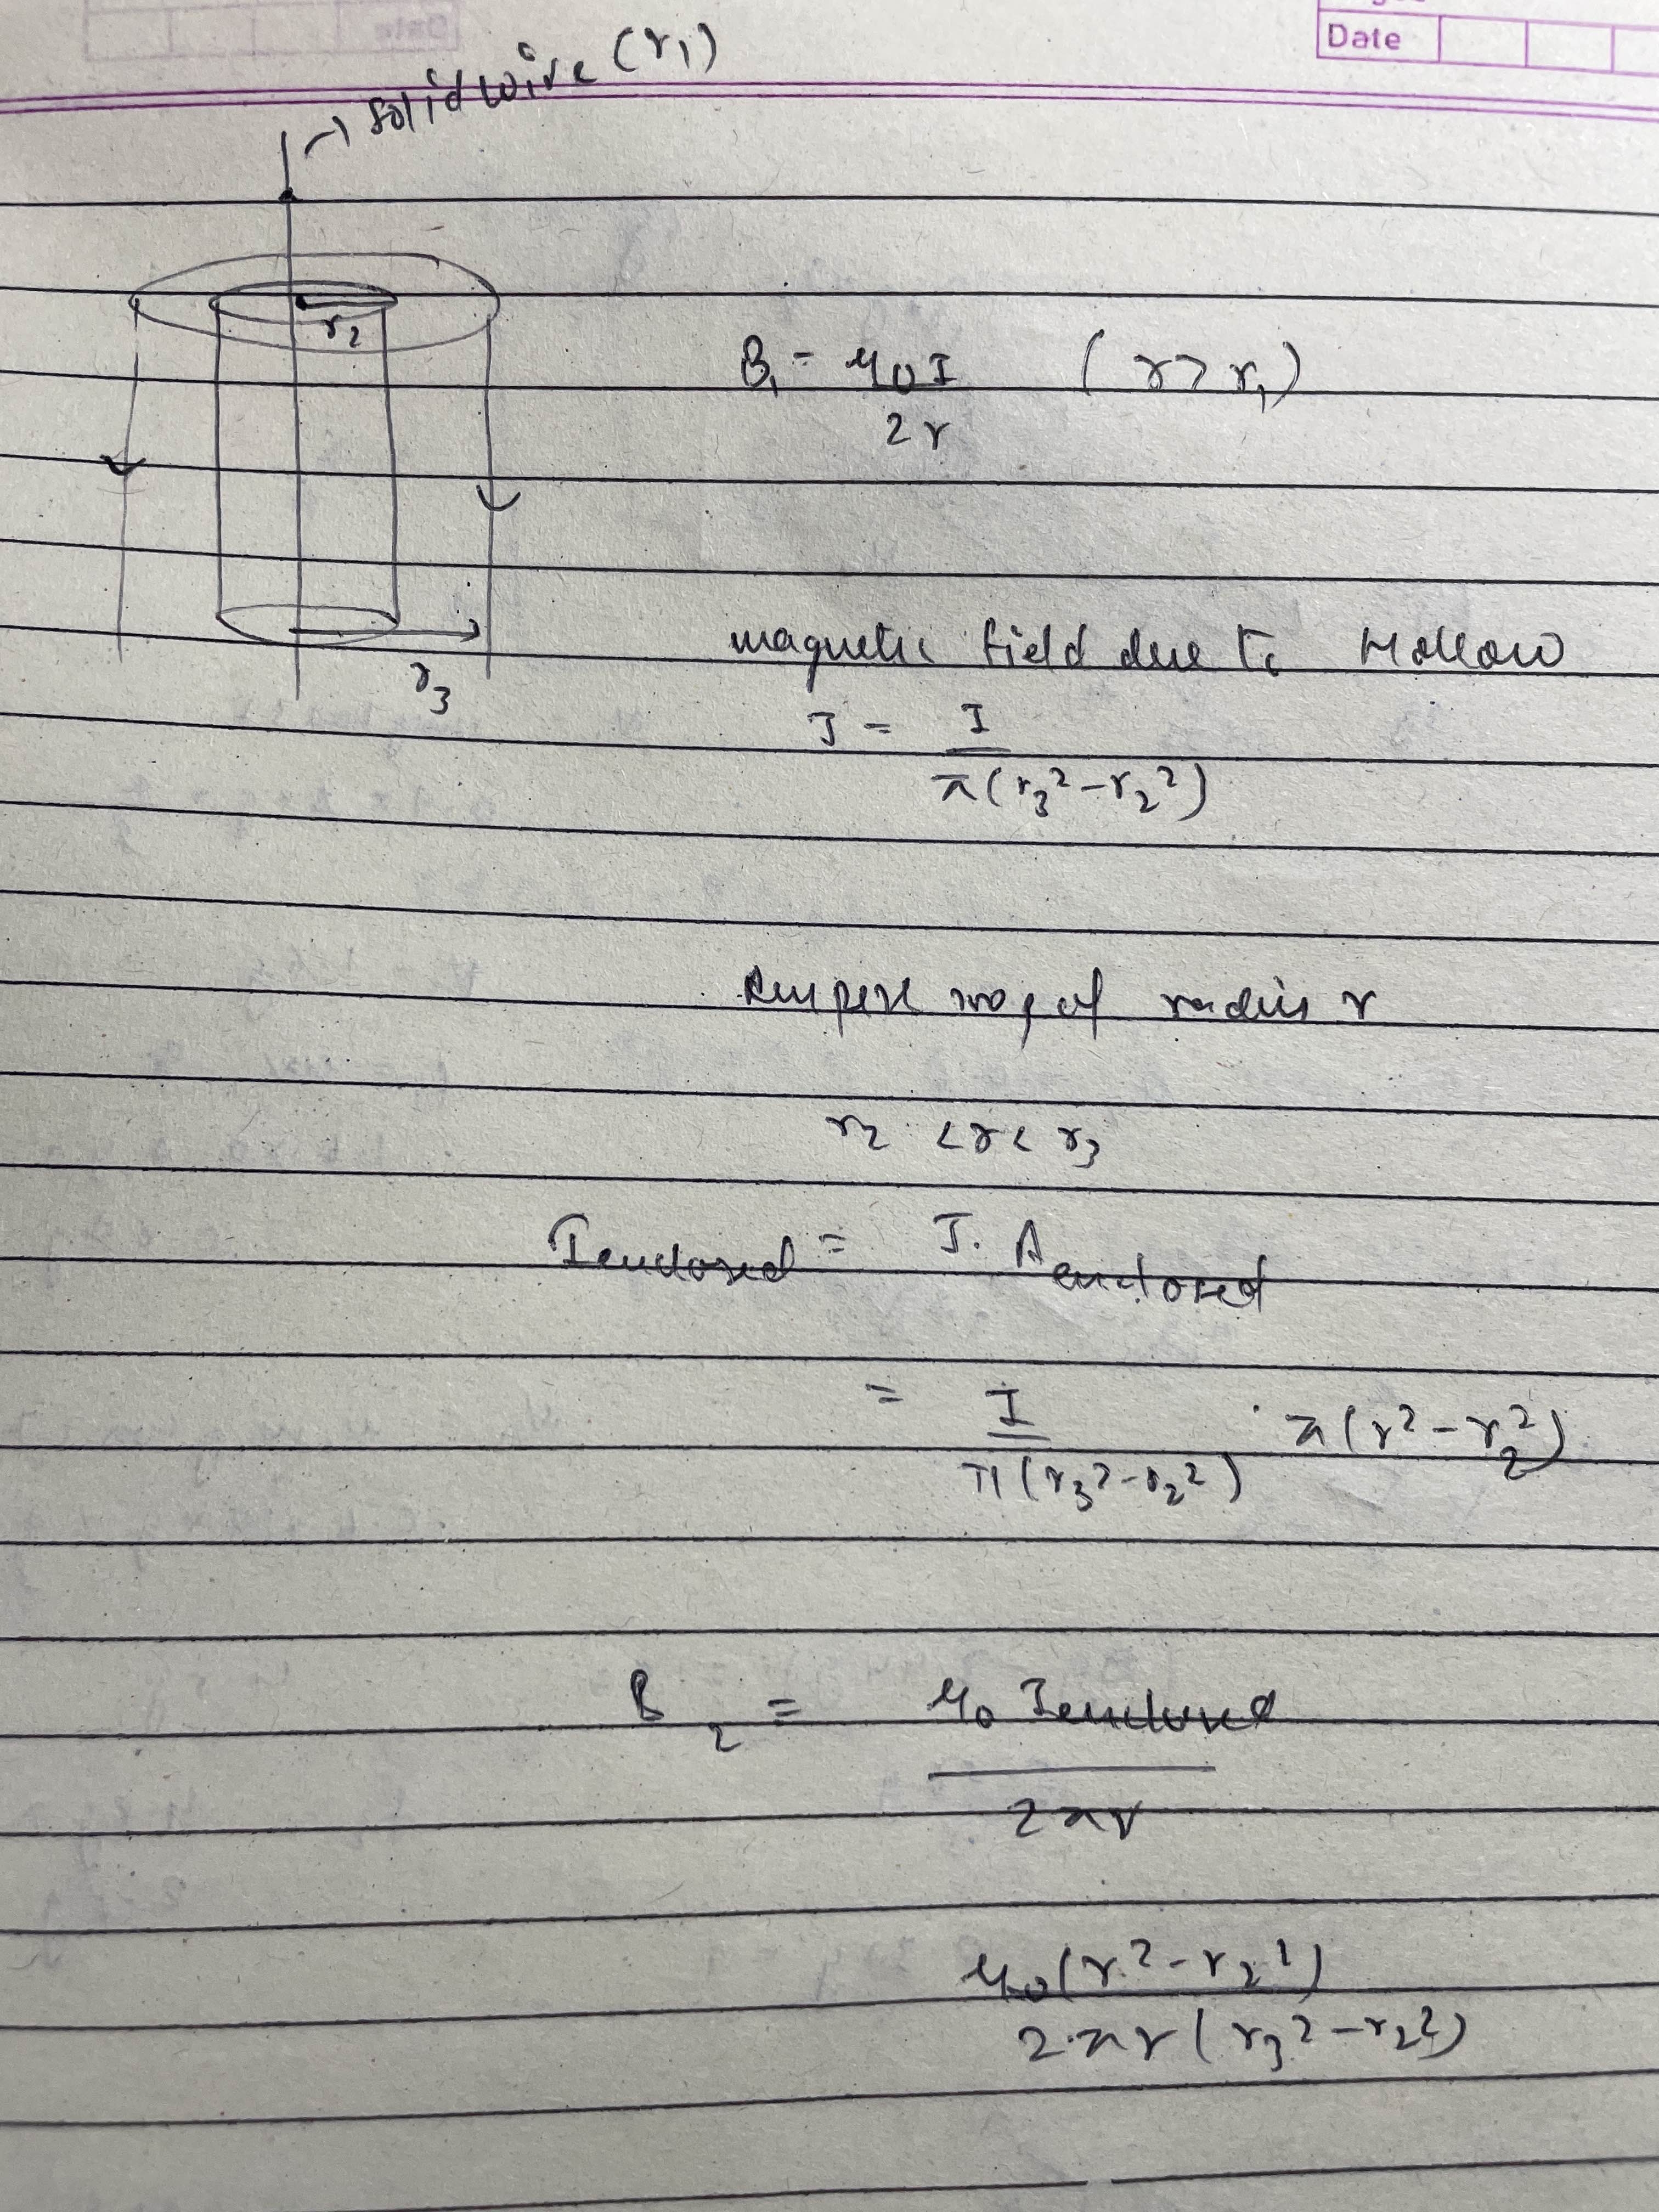 Date
→ solid wire (r₁)
r₂
B₁ = μ0 I / 2r (r > r₁)
r₃
magnetic field due to Hollow
J = I / π(r₃² - r₂²)
of radius r
r₂ < r < r₃
Ienclosed = J. Aenclosed
= I / π(r₃² - r₂²) · π(r² - r₂²)
B₂ = μ0 Ienclosed / 2πr
μ0(r² - r₂²) / 2πr(r₃² - r₂²)